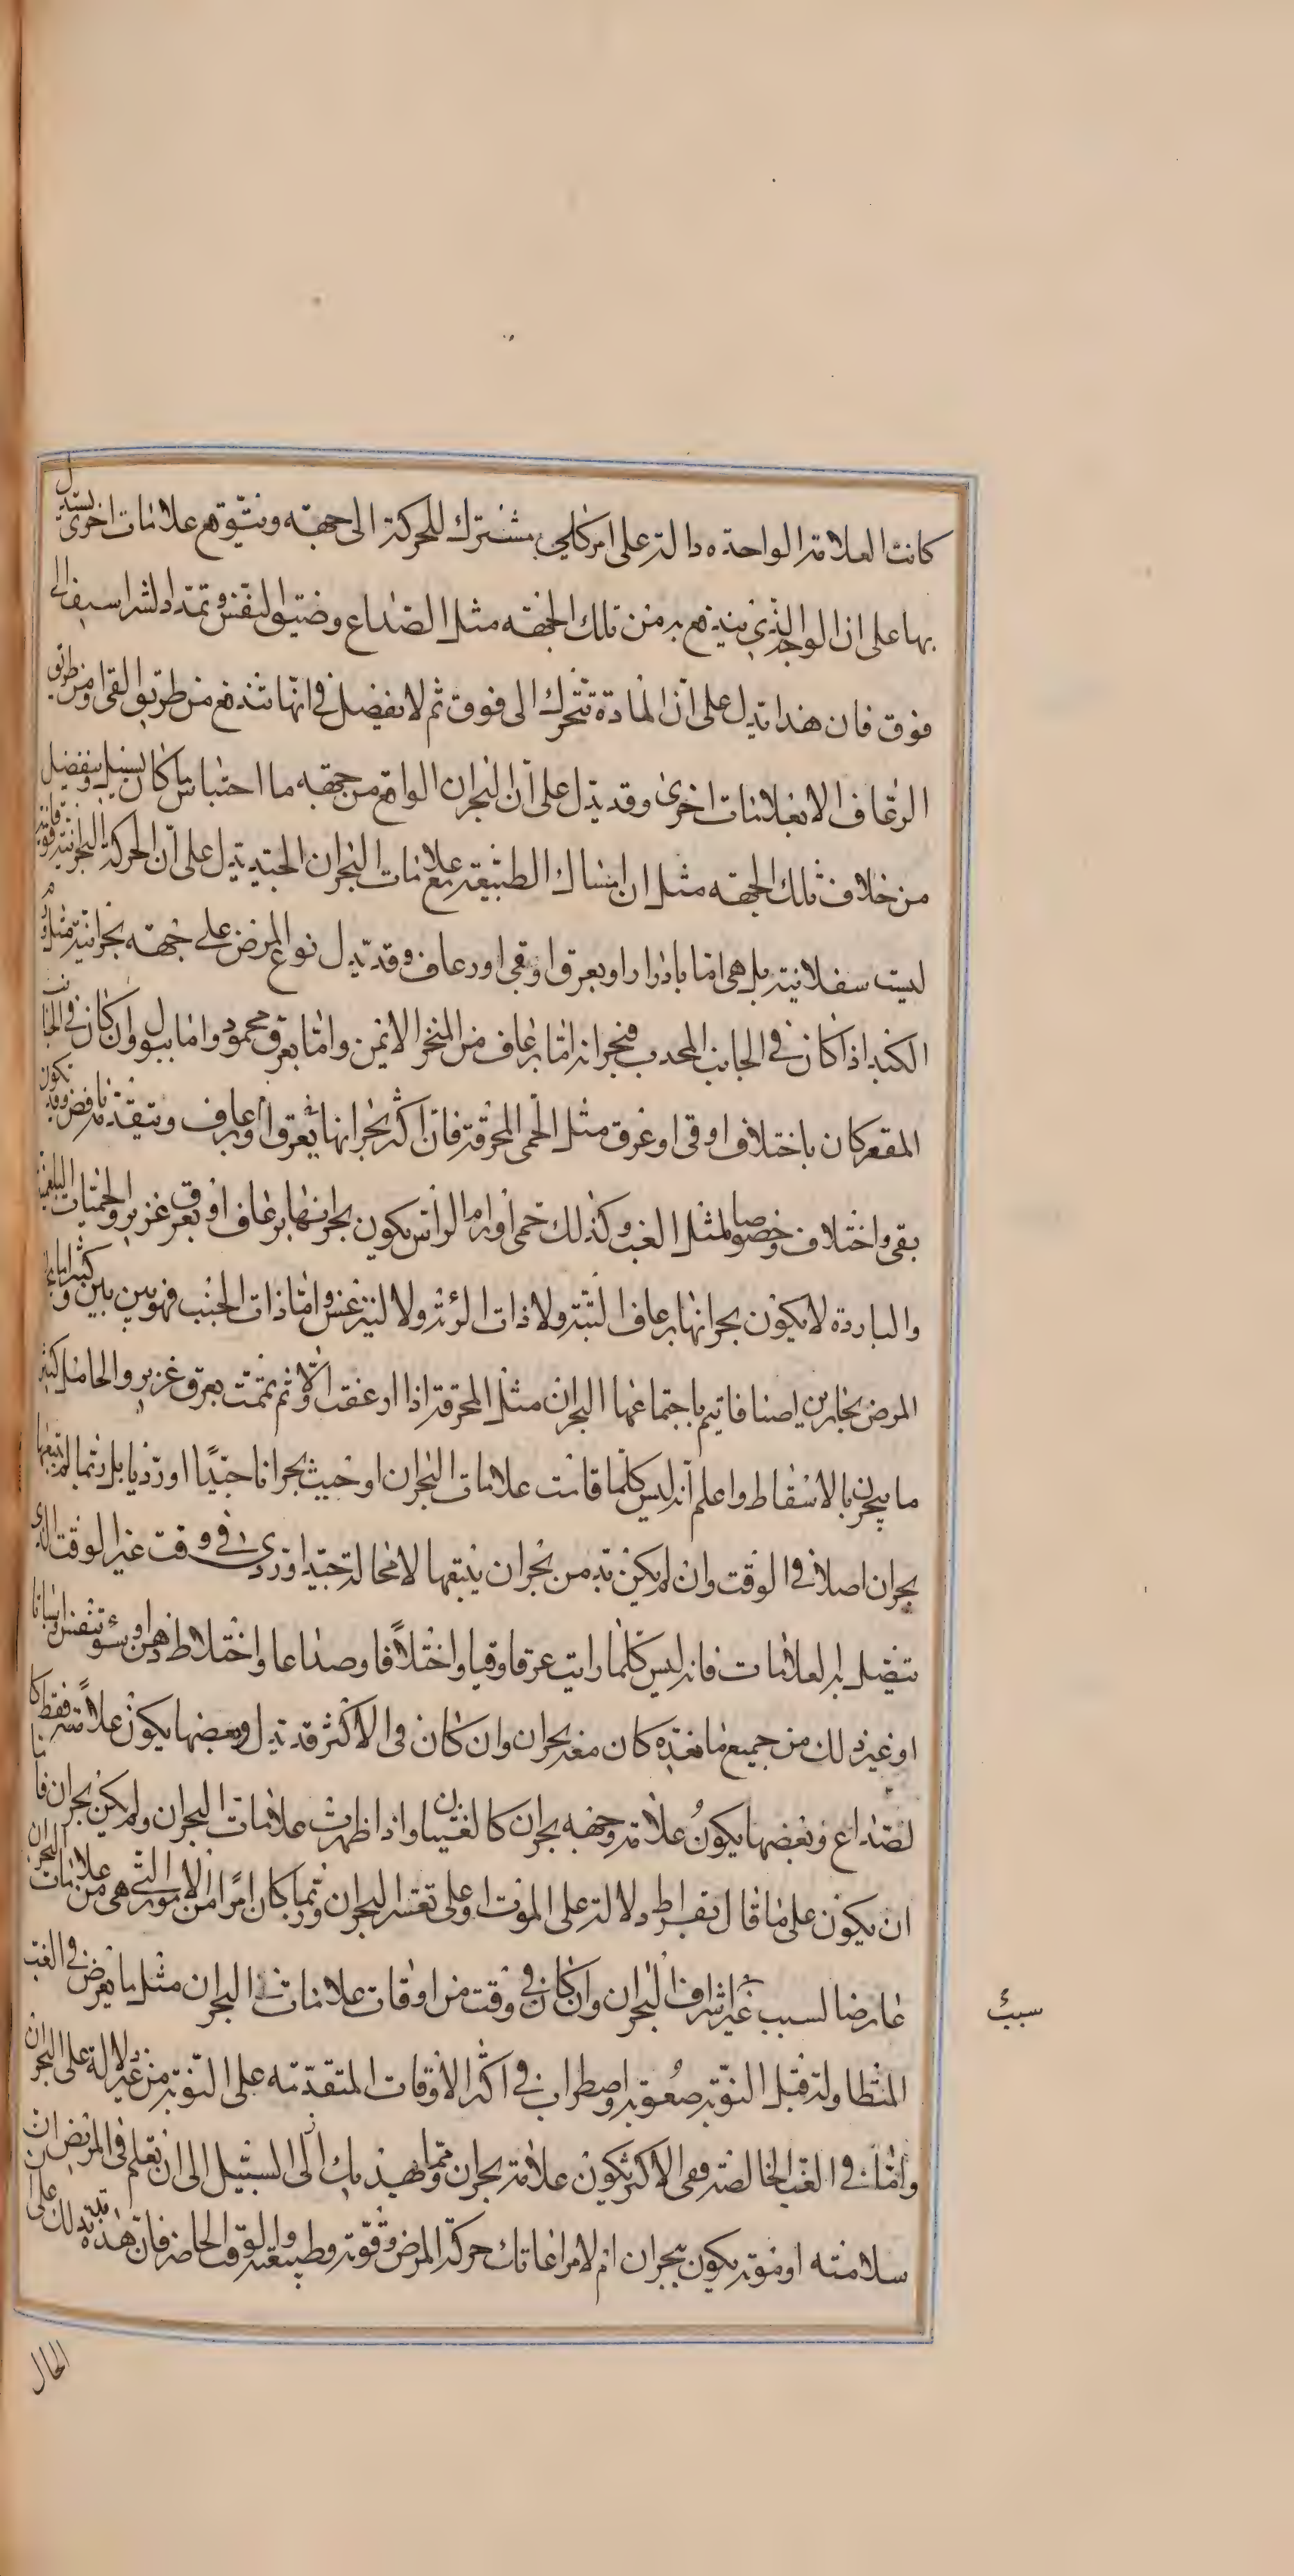 كانت العلامة الواحدة دالة على امر كلي مشترك للحركة الى جهة ويتوقع علامات اخرى يستدل
بها على ان الوجه الذي يندفع به من تلك الجهة مثل الصداع وضيق النفس وتمدد الشراسيف الى
فوق فان هذا يدل على ان المادة تتحرك الى فوق ثم لا يفصل في انها تندفع من طريق القي او من طريق
الرعاف الا بعلامات اخرى وقد يدل على ان البحران الواقع من جهة ما احتباس ما كان يسيل وينفصل
من خلاف تلك الجهة مثل ان امساك الطبيعة مع علامات البحران الجيد يدل على ان الحركة البحرانية فوقانية
ليست سفلانية بل هي اما بادرار او بعرق او قي او رعاف وقد يدل نوع المرض على جهة بحرانية مثل ورم
الكبد اذا كان في الجانب المحدب فبحرانه اما برعاف من المنخر الايمن واما بعرق محمود واما ببول وان كان في الجانب
المقعر كان باختلاف او قي او عرق مثل الحمى المحرقة فان اكثر بحرانها يعرق او برعاف ويتقدمه نافض وقد يكون
بقي واختلاف وخصوصا لمثل الغب وكذلك حمى اورام الراس يكون بحرانها برعاف او بعرق غزير والحميات البلغمية
والباردة لا يكون بحرانها برعاف البتة ولا ذات الرئة ولا ليثرغس واما ذات الجنب فهو بين بين وكثيرا ما
المرض بحارين اصنافا يتم باجتماعها البحران مثل المحرقة اذا ارعفت اولا ثم تمت بعرق غزير والحامل كثيرا
ما يبحرن بالاسقاط واعلم انه ليس كلما قامت علامات البحران اوجبت بحرانا جيدا او رديا بل ربما لم يتبعها
بحران اصلا في الوقت وان لم يكن بد من بحران يتبعها لا محالة جيد او ردي في وقت غير الوقت الذي
يتصل به العلامات فانه ليس كلما رايت عرقا وقيا واختلافا وصداعا واختلاط ذهن او سوء تنفس او سباتا
او غير ذلك من جميع ما نعده كان معه بحران وان كان في الاكثر قد يدل وبعضها يكون علامة فقط كا
لصداع وبعضها يكون علامة وجهة بحران كالغثيان واذا ظهرت علامات البحران ولم يكن بحران فاما
ان يكون على ما قال بقراط دلالة على الموت او على تعسر البحران وربما كان امرا من الامور التي هي من علامات البحران
عارضا لسبب غير اشراف البحران وان كان في وقت من اوقات علامات البحران مثل ما يعرض في الغب
المتطاولة قبل النوبة صعوبة واضطراب في اكثر الاوقات المتقدمة على النوبة من غير دلالة على البحران
واما في الغب الخالصة ففي الاكثر تكون علامة بحران ومما يهديك الى السبيل الى ان تعلم في المريض ان
سلامته او موته يكون ببحران ام لا مراعاتك حركة المرض وقوته وطبيعته والوقت الحاضر فان هذه قد تدلك على
سبب
الحال